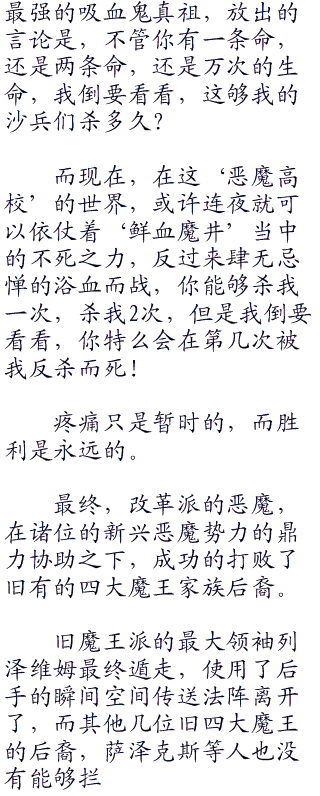 最强的吸血鬼真祖，放出的
言论是，不管你有一条命，
还是两条命，还是万次的生
命，我倒要看看，这够我的
沙兵们杀多久？
而现在，在这‘恶魔高
校’的世界，或许连夜就可
以依仗着‘鲜血魔井’当中
的不死之力，反过来肆无忌
惮的浴血而战，你能够杀我
一次，杀我2次，但是我倒要
看看，你特么会在第几次被
我反杀而死！
疼痛只是暂时的，而胜
利是永远的。
最终，改革派的恶魔，
在诸位的新兴恶魔势力的鼎
力协助之下，成功的打败了
旧有的四大魔王家族后裔。
旧魔王派的最大领袖列
泽维姆最终遁走，使用了后
手的瞬间空间传送法阵离开
了，而其他几位旧四大魔王
的后裔，萨泽克斯等人也没
有能够拦